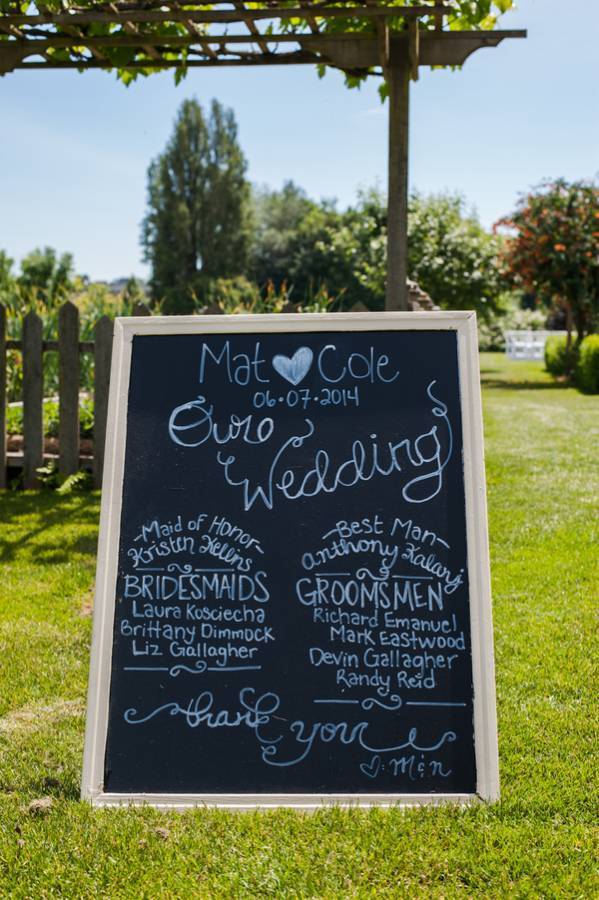 Mat Cole
06·07·2014
Our
Wedding
-Maid of Honor-
Kristen Kellns
BRIDESMAIDS
Laura Kosciecha
Brittany Dimmock
Liz Gallagher
-Best Man-
Anthony Kalanj
GROOMSMEN
Richard Emanuel
Mark Eastwood
Devin Gallagher
Randy Reid
thank you
♡: m & n